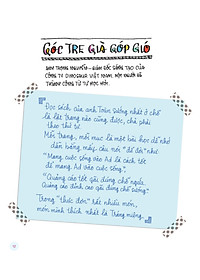 GÓC TRE GIÀ GÓP GIÓ
GIÁM ĐỐC SÁNG TẠO CỦA
CÔNG TY DINOSAUR VIỆT NAM, MỘT NGƯỜI ĐÃ
THÀNH CÔNG TỪ TỰ HỌC MỚI.
Đọc sách của anh Toàn sướng nhất ở chỗ
là lật trang nào cũng được, chả phải
theo thứ tự.
Mỗi trang, mỗi mục là một bài học để nhớ
dẫn bằng mấy câu nói "để đời" như:
"Mang cuộc sống vào Ad là cách tốt
để mang Ad vào cuộc sống".
"Quảng cáo tốt gãi đúng chỗ ngứa.
Quảng cáo đỉnh cao gãi đúng chỗ sướng."
Trong "thực đơn" rất nhiều món,
món mình thích nhất là Tráng miệng.